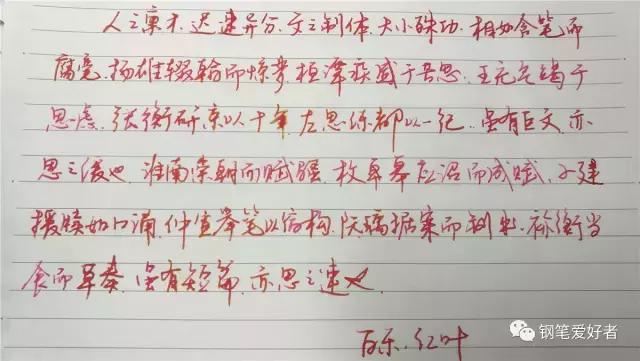 人之禀才.迟速异分.文之制体.大小殊功.相如含笔而
腐毫.扬雄辍翰而惊梦 桓谭疾感于苦思.王充气竭于
思虑.张衡研京以十年.左思练都以一纪.虽有巨文.亦
思之缓也.淮南崇朝而赋骚.枚皋应诏而成赋.子建
援牍如口诵.仲宣举笔似宿构.阮瑀据案而制书.祢衡当
食而草奏.虽有短篇.亦思之速也
百乐.红叶
钢笔爱好者